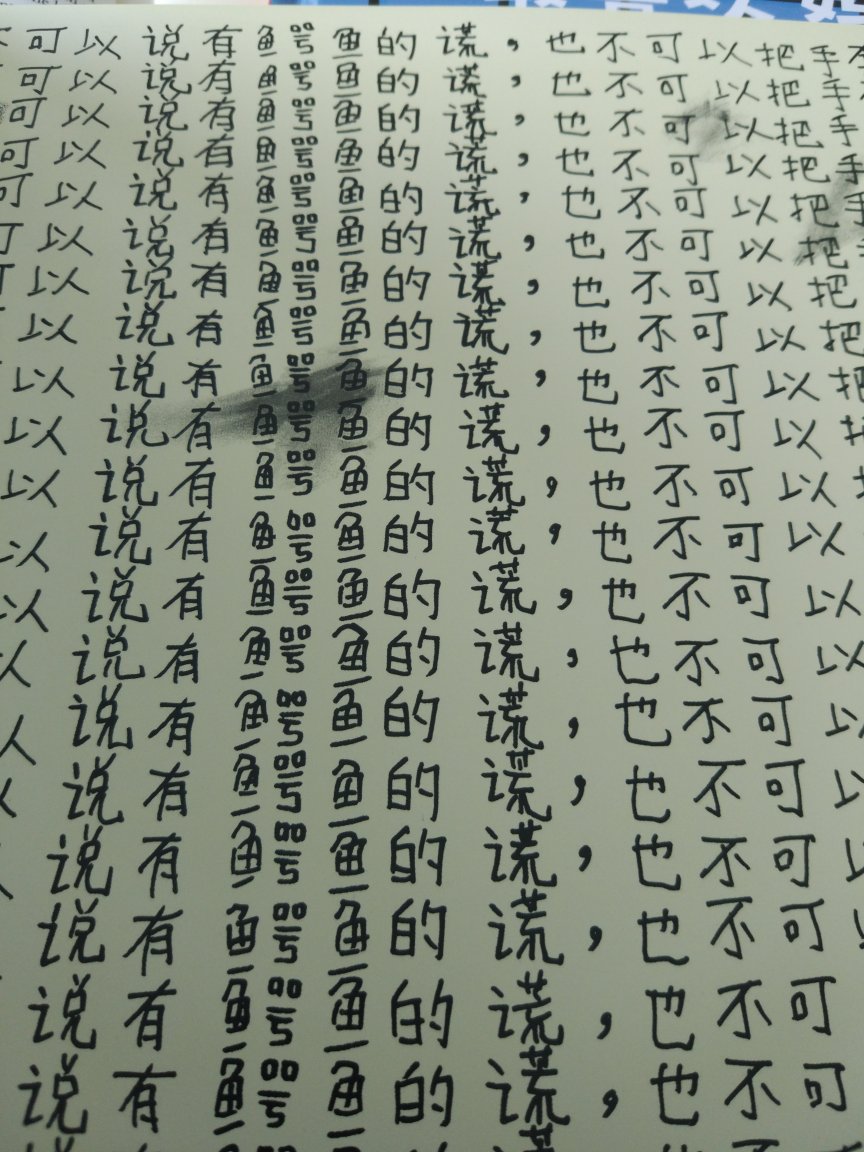 可以说有鳄鱼的谎，也不可以把手
可以说有鳄鱼的谎，也不可以把手
可以说有鳄鱼的谎，也不可以把手
可以说有鳄鱼的谎，也不可以把手
可以说有鳄鱼的谎，也不可以把手
以说有鳄鱼的谎，也不可以把
以说有鳄鱼的谎，也不可以把
以说有鳄鱼的谎，也不可以把
以说有鳄鱼的谎，也不可以把
以说有鳄鱼的谎，也不可以
以说有鳄鱼的谎，也不可以
以说有鳄鱼的谎，也不可以
以说有鳄鱼的谎，也不可以
说有鳄鱼的谎，也不可以
说有鳄鱼的谎，也不可
说有鳄鱼的谎，也不可
说有鳄鱼的谎，也不可
说有鳄鱼的谎，也不可
说有鳄鱼的谎，也不可
说有鳄鱼的谎，也不可